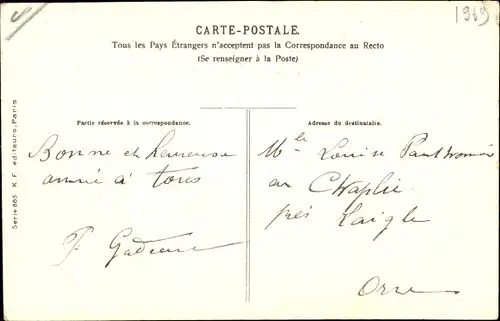 1969
CARTE-POSTALE.
Tous les Pays Étrangers n'acceptent pas la Correspondance au Recto
(Se renseigner à la Poste)
Partie réservée à la correspondance.
Bonne et heureuse
année à tous
Adresse du destinataire.
Mlle Louise
au Chaplie
près Laigle
Orne
Serie 685 K.F. éditeurs, Paris